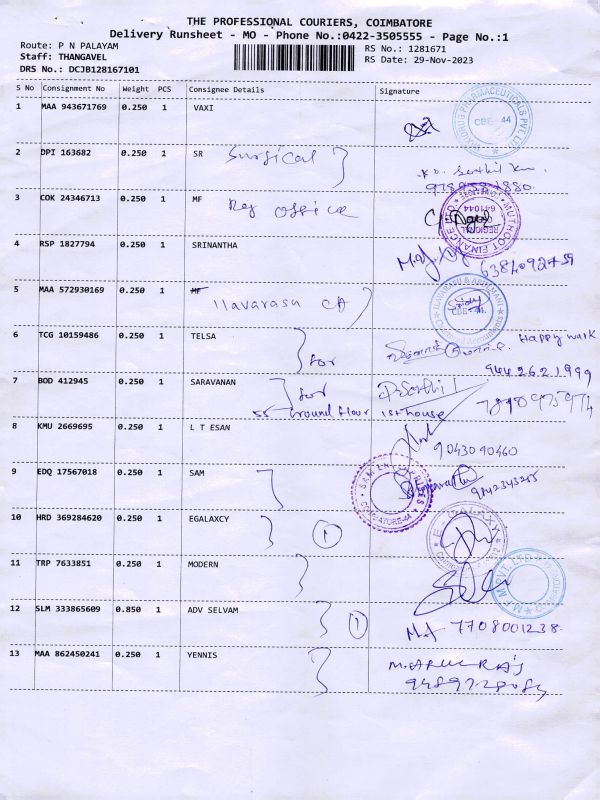 THE PROFESSIONAL COURIERS, COIMBATORE
Delivery Runsheet - MO - Phone No.:0422-3505555 - Page No.:1
Route: P N PALAYAM
RS No.: 1281671
Staff: THANGAVEL
RS Date: 29-Nov-2023
DRS No.: DCJB128167101
S No Consignment No Weight PCS Consignee Details Signature
1 MAA 943671769 0.250 1 VAXI
CBE-44
2 DPI 163682 0.250 1 SR Surgical
3 COK 24346713 0.250 1 MF Reg office
MUTHOOT FINANCE LTD
REGIONAL
641044
4 RSP 1827794 0.250 1 SRINANTHA
6384092451
5 MAA 572930169 0.250 1 MF Ilavarasa CA
6 TCG 10159486 0.250 1 TELSA for
Happy walk
9442621999
7 BOD 412945 0.250 1 SARAVANAN for
55 Ground floor 1st house
8 KMU 2669695 0.250 1 L T ESAN
9043090460
9 EDQ 17567018 0.250 1 SAM
9842343255
10 HRD 369284620 0.250 1 EGALAXCY 1
E-GALAXY
11 TRP 7633851 0.250 1 MODERN
12 SLM 333865609 0.850 1 ADV SELVAM 1
7708001238
13 MAA 862450241 0.250 1 YENNIS
M. ARULRAJ